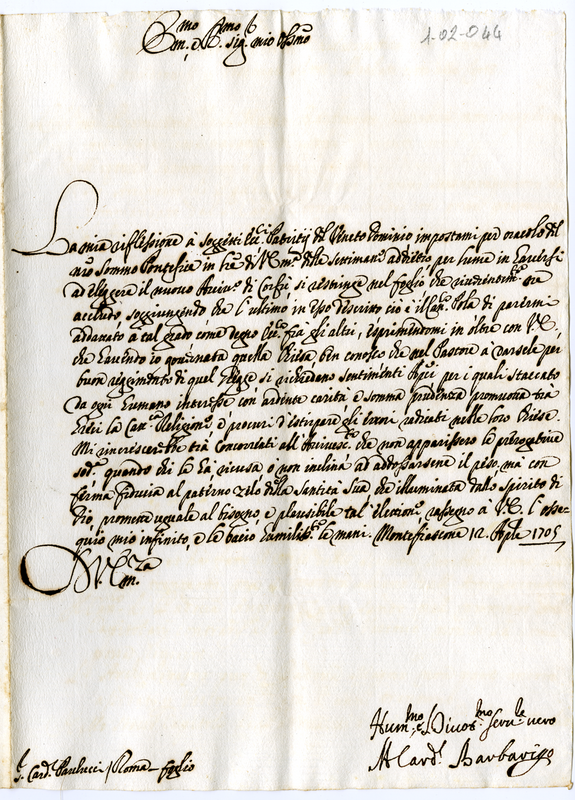 1-02-044
Em.mo e R.mo sig.r mio Oss.mo
La mia riflessione à soggetti Ecc.ci Patritij del Veneto Dominio impostami per oracolo del
n.ro Sommo Pontefice in tre di V. Em.za della Settiman.a addietro per lume in haversi
ad eleggere il nuovo Arciv.o di Corfù si restringe nel foglio che riverentem.te ora
accludo, soggiungendo che l'ultimo in esso descritto cioè il Can. Pola di parermi
adattato à tal grado come degno frà gli altri, esprimendomi in oltre con V. E.
che havendo io governata quella Chiesa ben conosco che nel Pastore à darsele per
buon regimento di quel Gregge si richiedano sentimenti per i quali staccato
da ogni humano interesse con ardente carità e somma prudenza promuova trà
la Cat.ca Religione, e procuri d'estirpare gli errori radicati nelle loro Chiese.
Mi rincresce che trà Concorrenti all'Arcivesc.to che non apparissero le prerogative
sod.e quando chi le ha ricusa ò non inclina ad addossarsene il peso, ma con
ferma fiducia al paterno zelo della Santità Sua che illuminata dallo Spirito di
Dio, promova uguale al bisogno e plausibile tal'elezione, rassegno a V. E. l'osse=
quio mio infinito, e le bacio humiliss.te le mani. Montefiascone 12. Ap.le 1705
D V. Em.za
Hum.mo e Divot.mo Serv.le vero
M Card.l Barbarigo
S.r Card. Paulucci / Roma - foglio